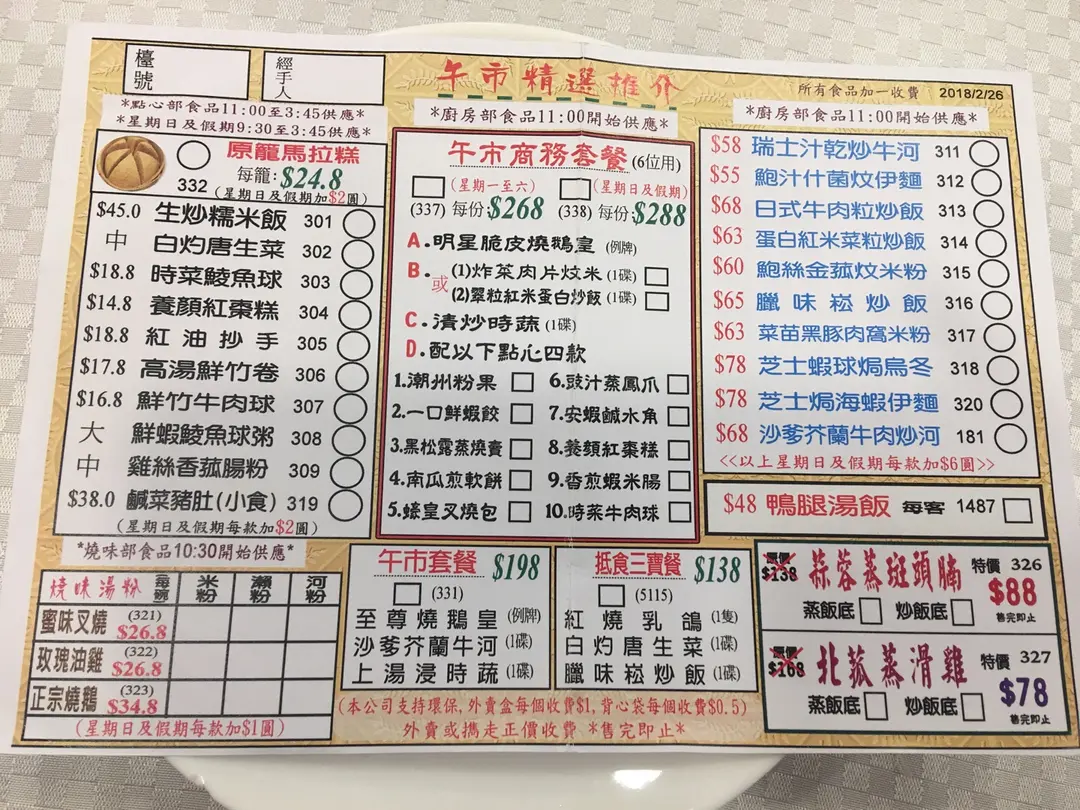 檯號
經手人
午市精選推介
所有食品加一收費 2018/2/26
*點心部食品11:00至3:45供應*
*星期日及假期9:30至3:45供應*
332
原籠馬拉糕
每籠:$24.8
(星期日及假期加$2圓)
$45.0 生炒糯米飯 301
中 白灼唐生菜 302
$18.8 時菜鯪魚球 303
$14.8 養顏紅棗糕 304
$18.8 紅油抄手 305
$17.8 高湯鮮竹卷 306
$16.8 鮮竹牛肉球 307
大 鮮蝦鯪魚球粥 308
中 雞絲香菰腸粉 309
$38.0 鹹菜豬肚(小食) 319
(星期日及假期每款加$2圓)
*燒味部食品10:30開始供應*
燒味湯粉 每碗 米粉 瀨粉 河粉
蜜味叉燒 (321) $26.8
玫瑰油雞 (322) $26.8
正宗燒鵝 (323) $34.8
(星期日及假期每款加$1圓)
*廚房部食品11:00開始供應*
午市商務套餐(6位用)
(星期一至六) (星期日及假期)
(337) 每份:$268 (338) 每份:$288
A.明星脆皮燒鵝皇 (例牌)
B.(1)炸菜肉片炆米 (1碟)
或(2)翠粒紅米蛋白炒飯 (1碟)
C.清炒時蔬 (1碟)
D.配以下點心四款
1.潮州粉果 6.豉汁蒸鳳爪
2.一口鮮蝦餃 7.安蝦鹹水角
3.黑松露蒸燒賣 8.養顏紅棗糕
4.南瓜煎軟餅 9.香煎蝦米腸
5.蠔皇叉燒包 10.時菜牛肉球
午市套餐 $198
(331)
至尊燒鵝皇 (例牌)
沙爹芥蘭牛河 (1碟)
上湯浸時蔬 (1碟)
抵食三寶餐 $138
(5115)
紅燒乳鴿 (1隻)
白灼唐生菜 (1碟)
臘味崧炒飯 (1碟)
(本公司支持環保,外賣盒每個收費$1,背心袋每個收費$0.5)
外賣或攜走正價收費 *售完即止*
*廚房部食品11:00開始供應*
$58 瑞士汁乾炒牛河 311
$55 鮑汁什菌炆伊麵 312
$68 日式牛肉粒炒飯 313
$63 蛋白紅米菜粒炒飯 314
$60 鮑絲金菰炆米粉 315
$65 臘味崧炒飯 316
$63 菜苗黑豚肉窩米粉 317
$78 芝士蝦球焗烏冬 318
$78 芝士焗海蝦伊麵 320
$68 沙爹芥蘭牛肉炒河 181
<<以上星期日及假期每款加$6圓>>
$48 鴨腿湯飯 每客 1487
原價 $138 蒜蓉蒸斑頭腩 特價 326
$88
蒸飯底 炒飯底 售完即止
原價 $108 北菰蒸滑雞 特價 327
$78
蒸飯底 炒飯底 售完即止